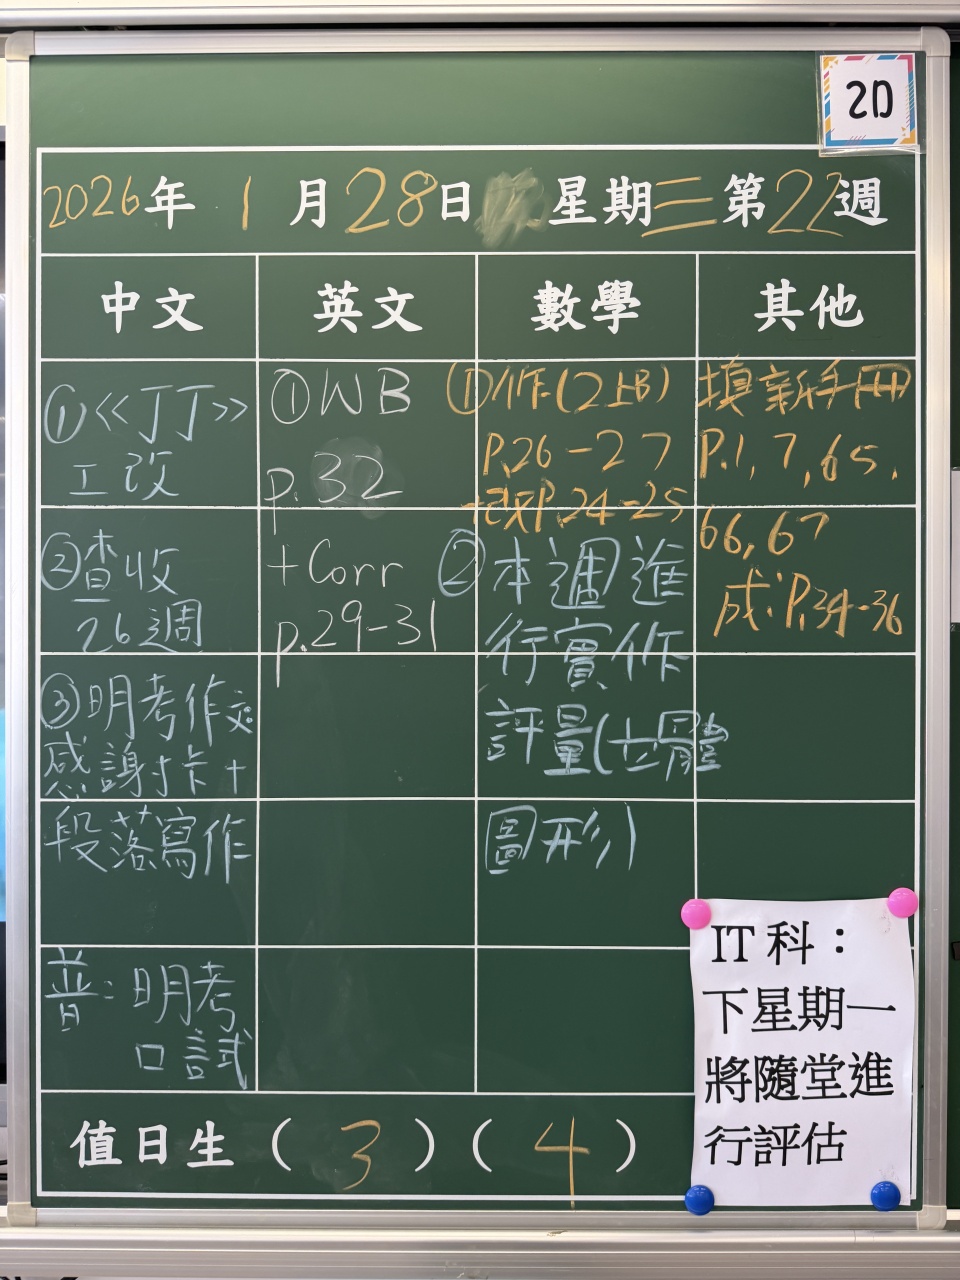 2D
2026年 1月28日 星期三第22週
中文 英文 數學 其他
①《丁丁》
工改
②查收
26週
③明考作文:
感謝卡+
段落寫作
普:明考
口試
①WB
p.32
+Corr
p.29-31
①作(2上B)
P.26-27
+改P.24-25
②本週進
行實作
評量(立體
圖形)
填新手冊
P.1,7,65,
66,67
成:P.34-36
IT科:
下星期一
將隨堂進
行評估
值日生(3)(4)